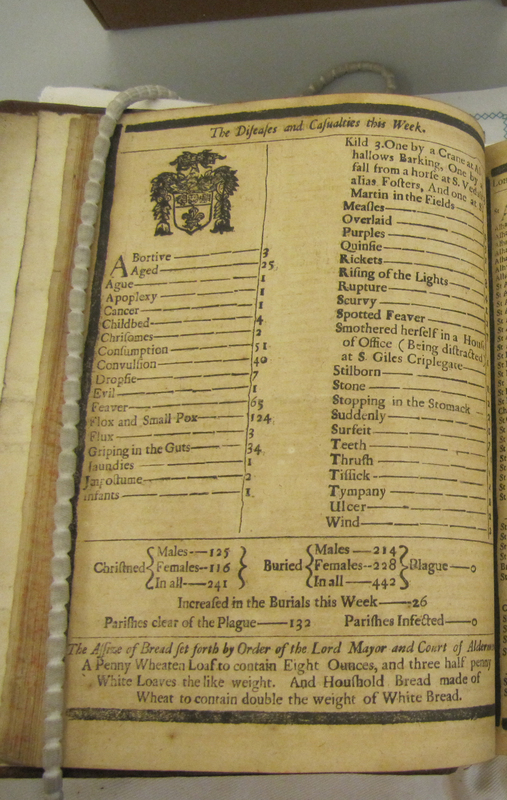 The Diſeaſes and Caſualties this Week.
ABortive — 3
Aged — 25
Ague — 1
Apoplexy — 1
Cancer — 1
Childbed — 4
Chriſomes — 2
Conſumption — 51
Convulſion — 40
Dropſie — 7
Evil — 1
Feaver — 65
Flox and Small Pox — 124
Flux — 3
Griping in the Guts — 34
Jaundies — 1
Impoſtume — 2
Infants — 1
Kild 3. One by a Crane at
hallows Barking, One by a
fall from a horſe at S.
alias Foſters, And one at
Martin in the Fields —
Meaſles —
Overlaid —
Purples —
Quinſie —
Rickets —
Riſing of the Lights —
Rupture —
Scurvy —
Spotted Feaver —
Smothered herſelf in a Houſ
of Office (Being diſtracted)
at S. Giles Criplegate —
Stilborn —
Stone —
Stopping in the Stomack —
Suddenly —
Surfeit —
Teeth —
Thruſh —
Tiſſick —
Tympany —
Ulcer —
Wind —
Chriſtned { Males — 125 Females — 116 In all — 241 } Buried { Males — 214 Females — 228 In all — 442 } Plague — 0
Increaſed in the Burials this Week — 26
Pariſhes clear of the Plague — 132 Pariſhes Infected — 0
The Aſſize of Bread ſet forth by Order of the Lord Mayor and Court of Alder
A Penny Wheaten Loaf to contain Eight Ounces, and three half penny
White Loaves the like weight. And Houſhold Bread made of
Wheat to contain double the weight of White Bread.